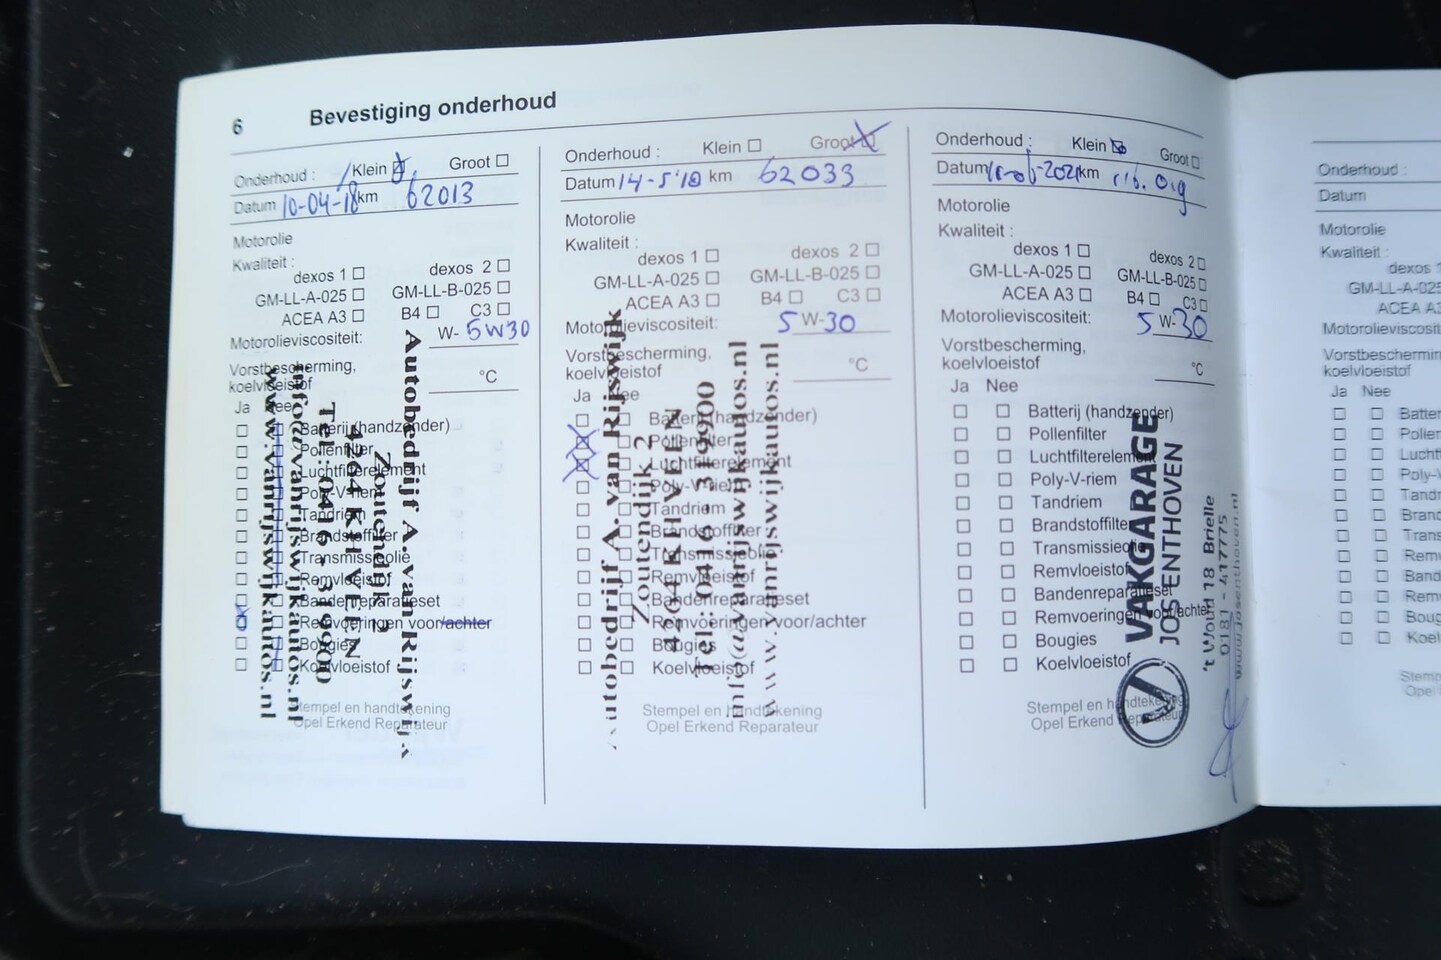 6 Bevestiging onderhoud
Onderhoud : Klein Groot
Datum 10-04-18 km 62013
Motorolie
Kwaliteit :
dexos 1 dexos 2
GM-LL-A-025 GM-LL-B-025
ACEA A3 B4 C3
Motorolieviscositeit: W- 5W30
Vorstbescherming,
koelvloeistof °C
Ja Nee
Batterij (handzender)
Pollenfilter
Luchtfilterelement
Poly-V-riem
Tandriem
Brandstoffilter
Transmissieolie
Remvloeistof
Bandenreparatieset
Remvoeringen voor/achter
Bougies
Koelvloeistof
Stempel en handtekening
Opel Erkend Reparateur
Autobedrijf A. van Rijswijk
Zoutendijk 2
4264 KH VEEN
Tel.: 0416-319900
info@vanrijswijkautos.nl
www.vanrijswijkautos.nl
Onderhoud : Klein Groot
Datum 14-5-'18 km 62033
Motorolie
Kwaliteit :
dexos 1 dexos 2
GM-LL-A-025 GM-LL-B-025
ACEA A3 B4 C3
Motorolieviscositeit: 5 W-30
Vorstbescherming,
koelvloeistof °C
Ja Nee
Batterij (handzender)
Pollenfilter
Luchtfilterelement
Poly-V-riem
Tandriem
Brandstoffilter
Transmissieolie
Remvloeistof
Bandenreparatieset
Remvoeringen voor/achter
Bougies
Koelvloeistof
Stempel en handtekening
Opel Erkend Reparateur
Autobedrijf A. van Rijswijk
Zoutendijk 2
4264 KH VEEN
Tel.: 0416-319900
info@vanrijswijkautos.nl
www.vanrijswijkautos.nl
Onderhoud : Klein Groot
Datum km
Motorolie
Kwaliteit :
dexos 1 dexos 2
GM-LL-A-025 GM-LL-B-025
ACEA A3 B4 C3
Motorolieviscositeit: 5 W-30
Vorstbescherming,
koelvloeistof °C
Ja Nee
Batterij (handzender)
Pollenfilter
Luchtfilterelement
Poly-V-riem
Tandriem
Brandstoffilter
Transmissieolie
Remvloeistof
Bandenreparatieset
Remvoeringen voor/achter
Bougies
Koelvloeistof
Stempel en handtekening
Opel Erkend Reparateur
VAKGARAGE
JOS ENTHOVEN
't Woud 18 Brielle
0181 - 417775
www.josenthoven.nl
Onderhoud :
Datum
Motorolie
Kwaliteit :
dexos 1
GM-LL-A-025
ACEA A3
Motorolieviscosit
Vorstbeschermin
koelvloeistof
Ja Nee
Batter
Pollen
Luchtf
Poly-V
Tandr
Brand
Trans
Remv
Band
Remv
Boug
Koel
Stemp
Opel